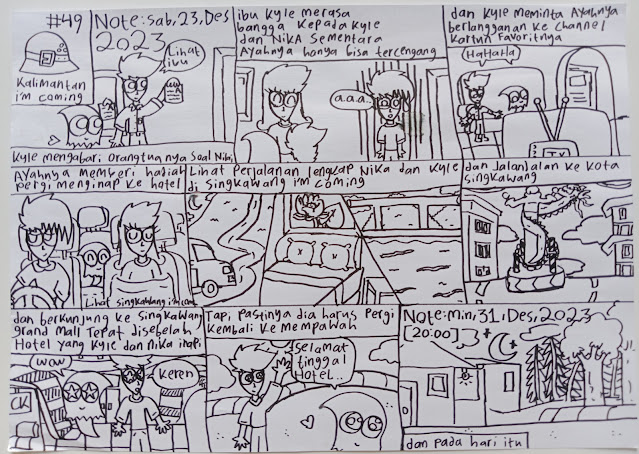 #49
Kalimantan
i'm coming
Note: sab, 23, Des
2023
Lihat
ibu
Kyle mengabari orangtuanya soal Nilai
ibu Kyle merasa
bangga Kepada Kyle
dan Nika sementara
Ayahnya hanya bisa tercengang
a..a..a..
dan Kyle meminta Ayahnya
berlangganan ke Channel
Kartun Favoritnya
HaHaHa
TV
Ayahnya memberi hadiah
pergi menginap ke hotel
Lihat singkawang i'm coming
Lihat Perjalanan lengkap Nika dan Kyle
di Singkawang i'm coming
dan Jalanjalan ke kota
singkawang
dan berkunjung ke Singkawang
grand Mall Tepat disebelah
Hotel yang Kyle dan Nika inapi
WOW
Keren
CK
Tapi Pastinya dia harus Pergi
Kembali Ke Mempawah
Selamat
tinggal
Hotel...
Note: min, 31, Des, 2023
[20:00]
dan pada hari itu